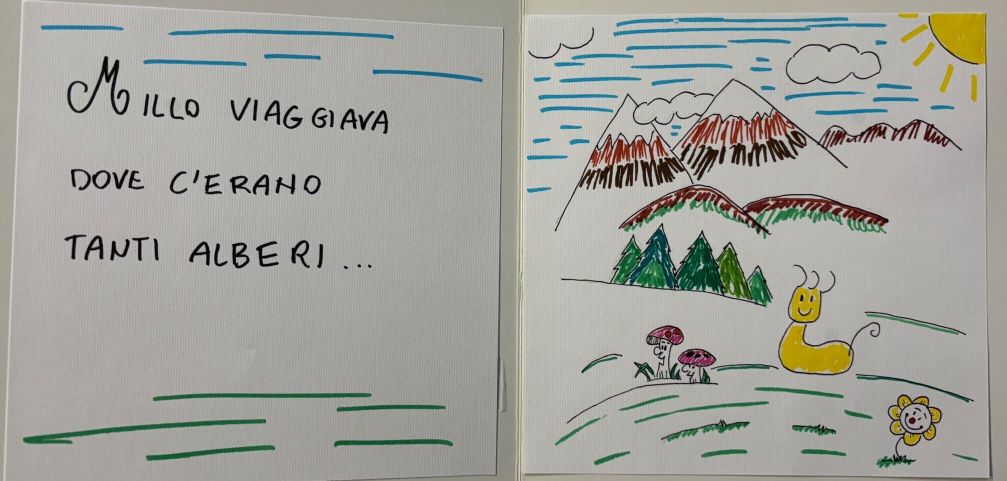 MILLO VIAGGIAVA
DOVE C'ERANO
TANTI ALBERI...